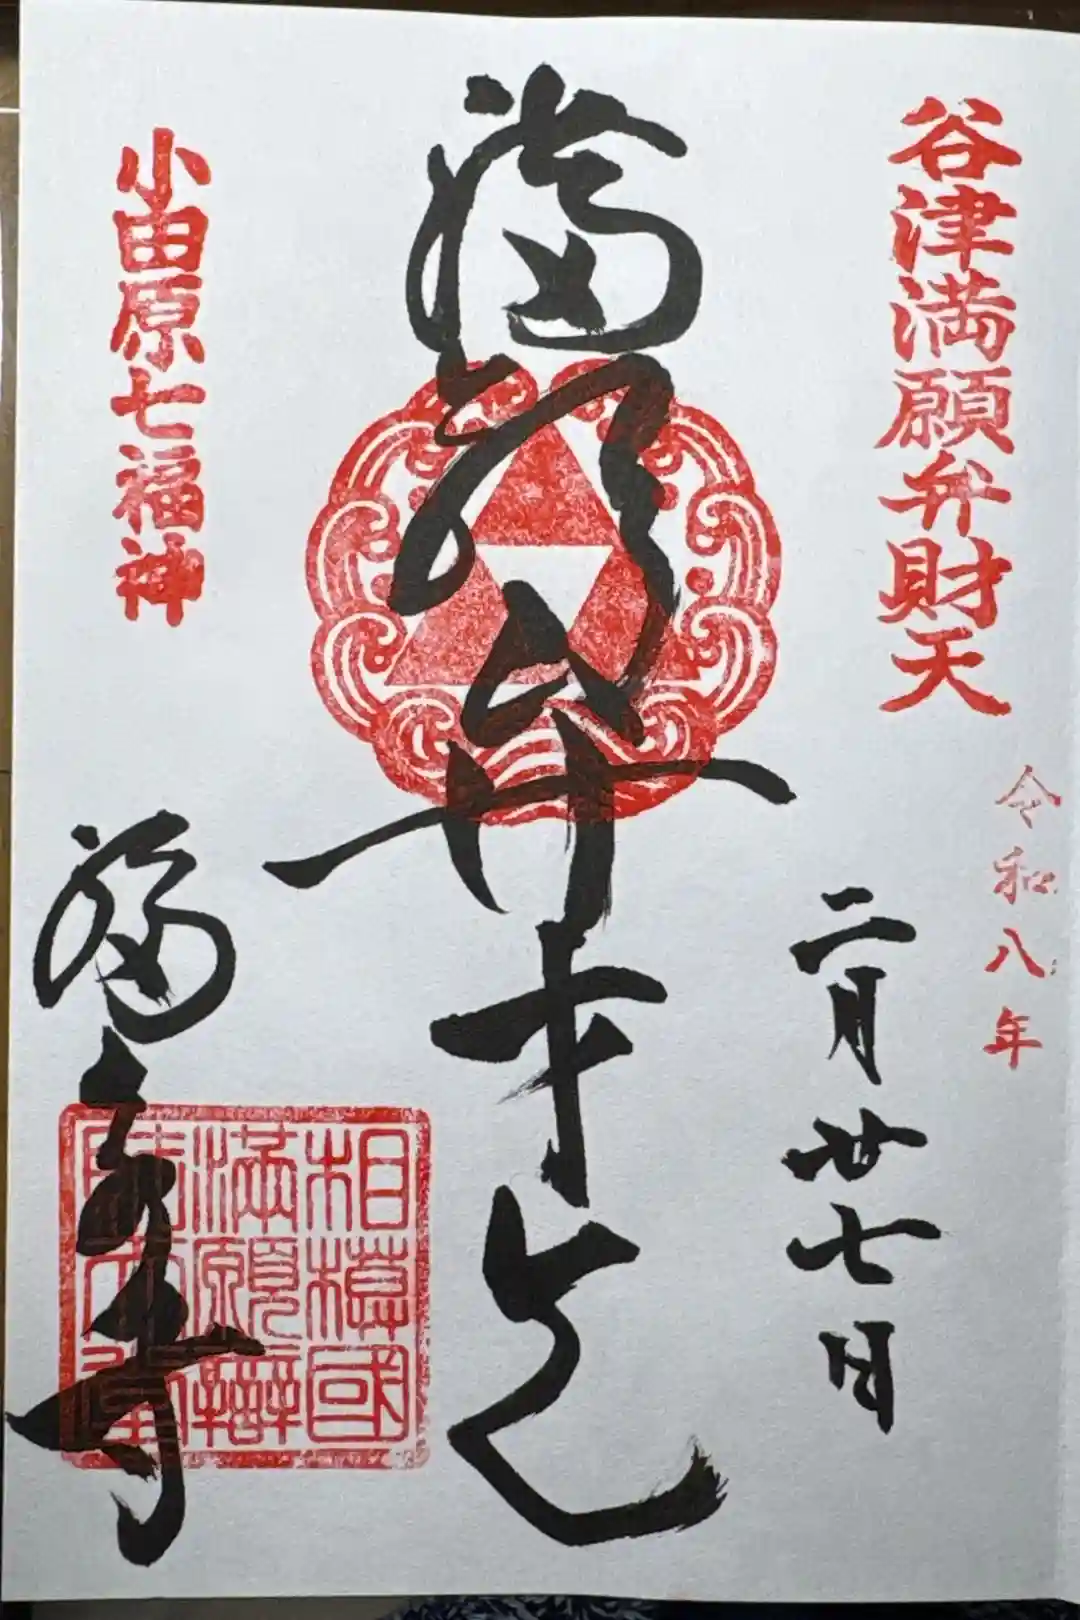 谷津満願弁財天
令和八年
二月廿七日
満願弁才天
小田原七福神
福泉寺
相模國
滿願辯
財天堂